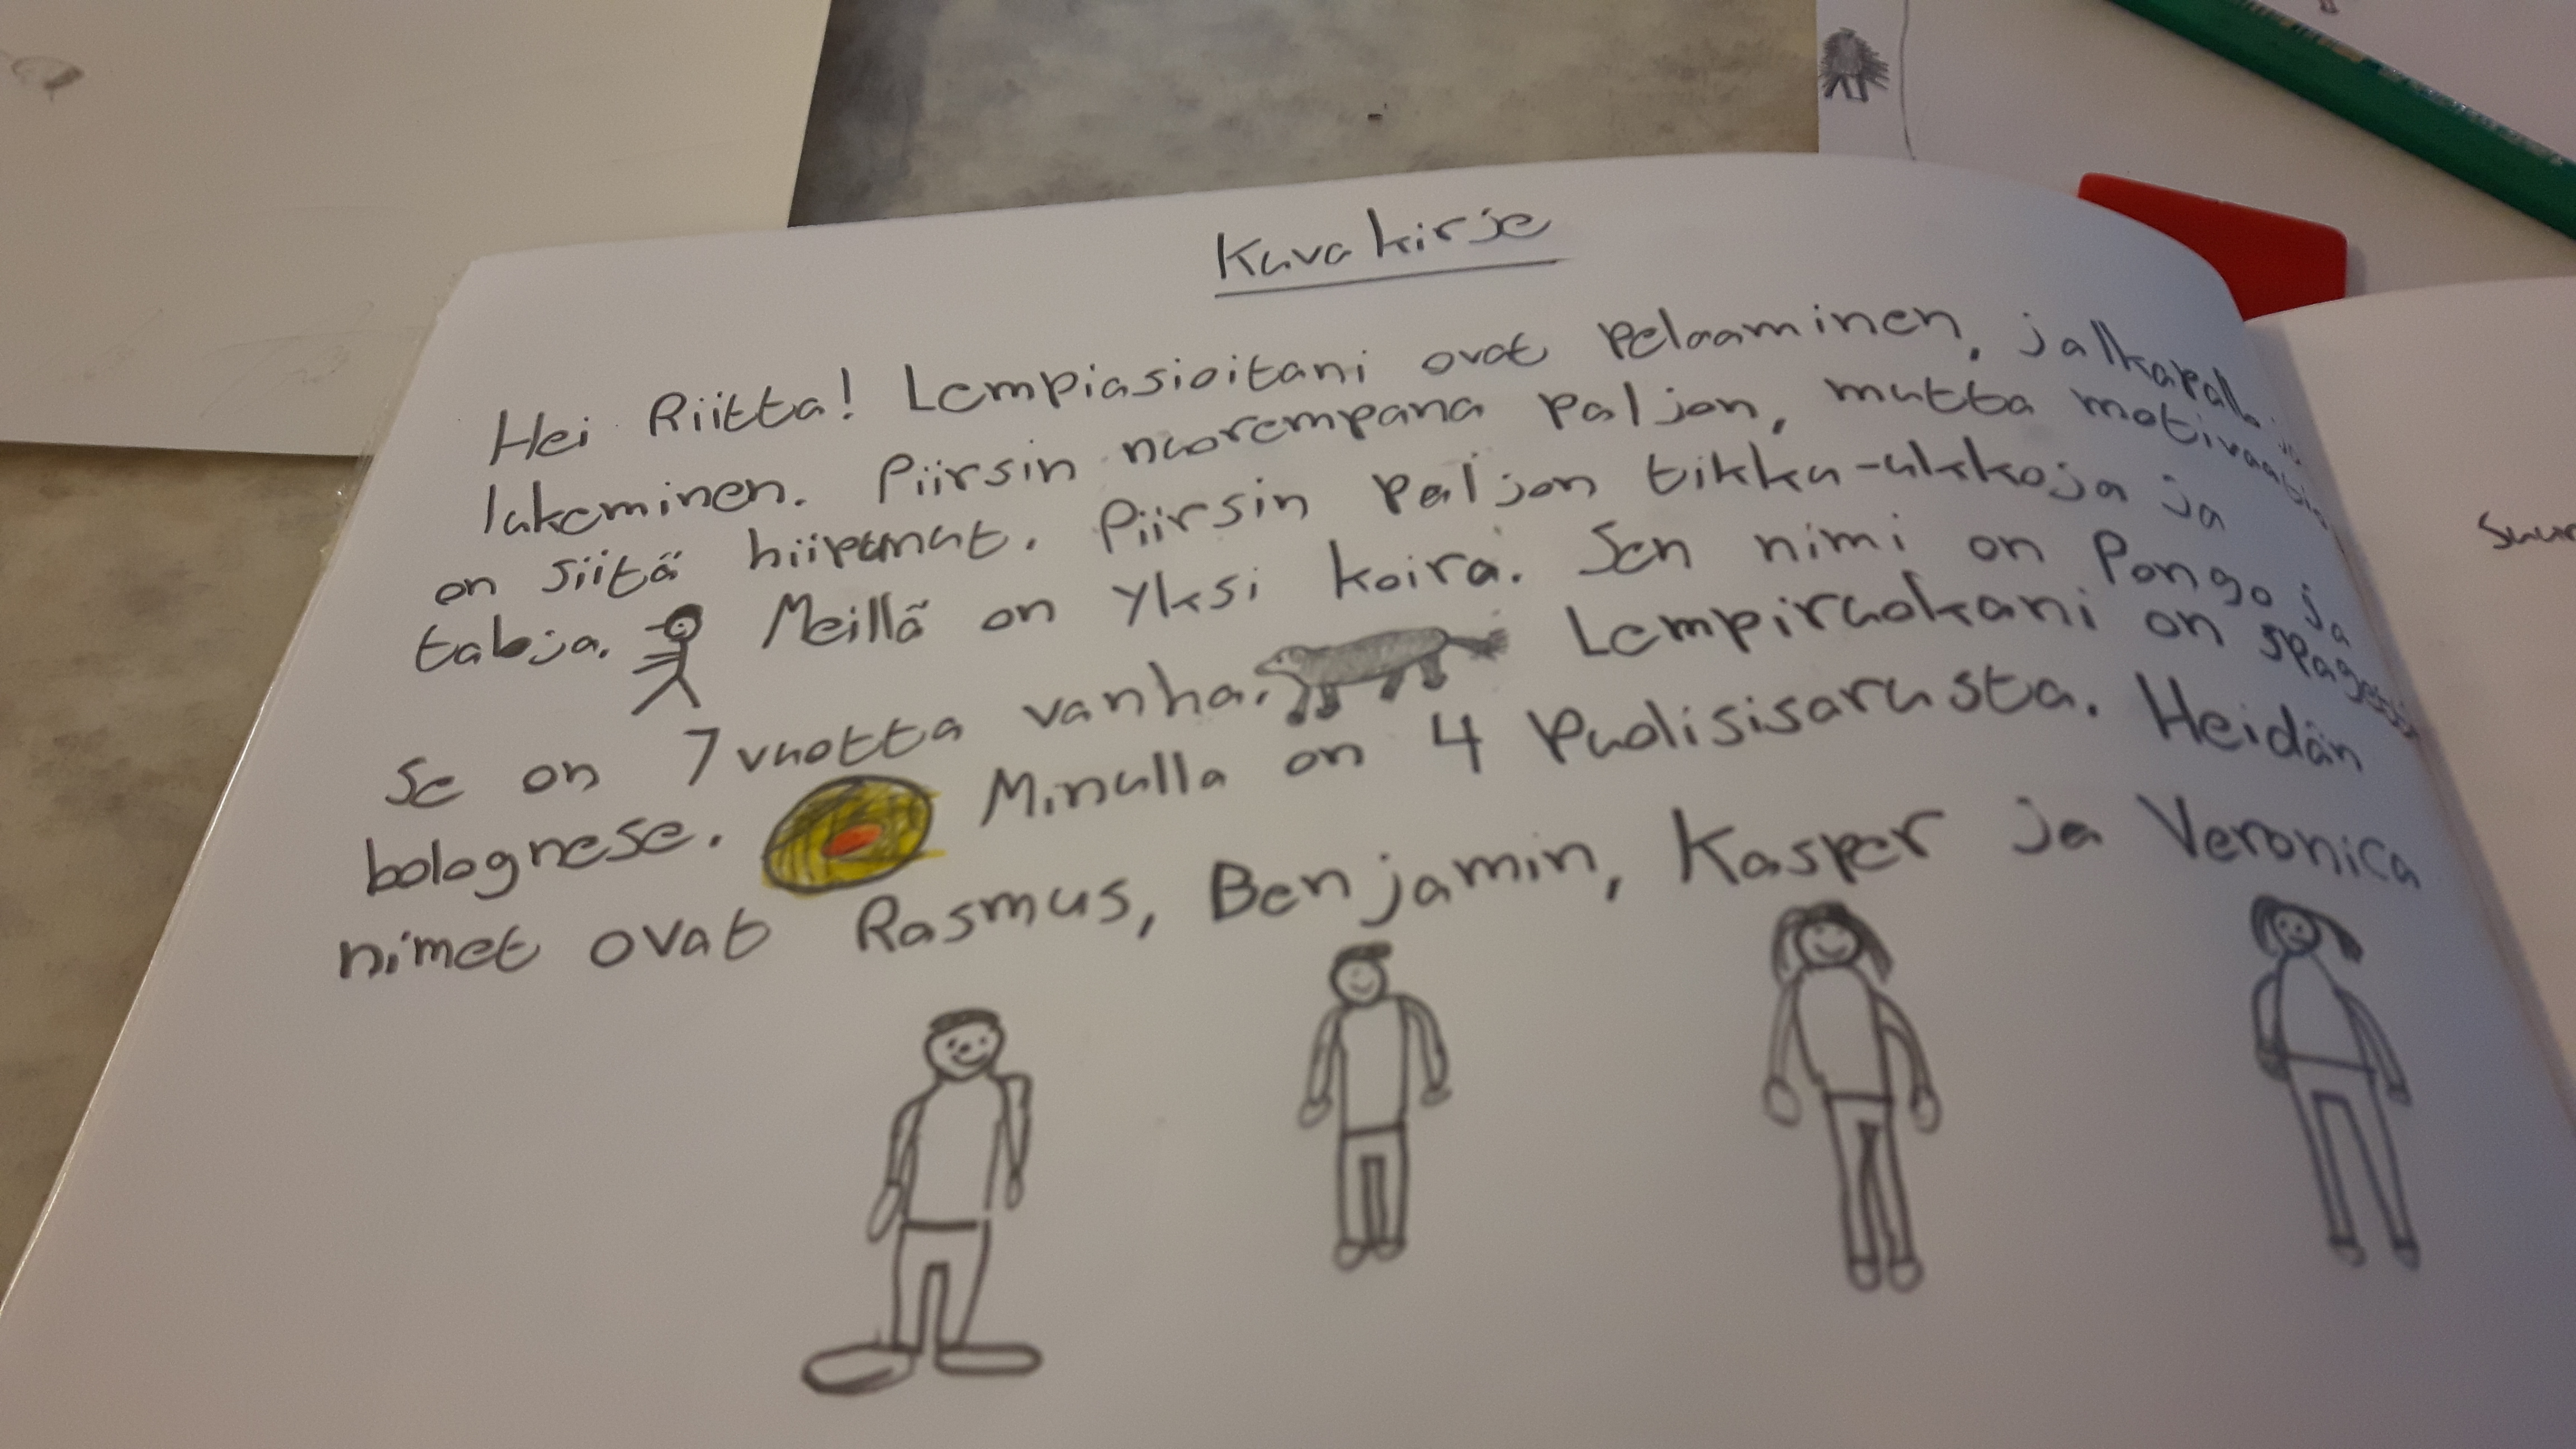 Kuvakirje
Hei Riitta! Lempiasioitani ovat pelaaminen, jalkapallo ja
lukeminen. Piirsin nuorempana paljon, mutta motivaatio
on siitä hiipunut. Piirsin paljon tikku-ukkoja ja
taloja. Meillä on yksi koira. Sen nimi on Pongo ja
Se on 7 vuotta vanha. Lempiruokani on spagetti
bolognese. Minulla on 4 puolisisarusta. Heidän
nimet ovat Rasmus, Benjamin, Kasper ja Veronica